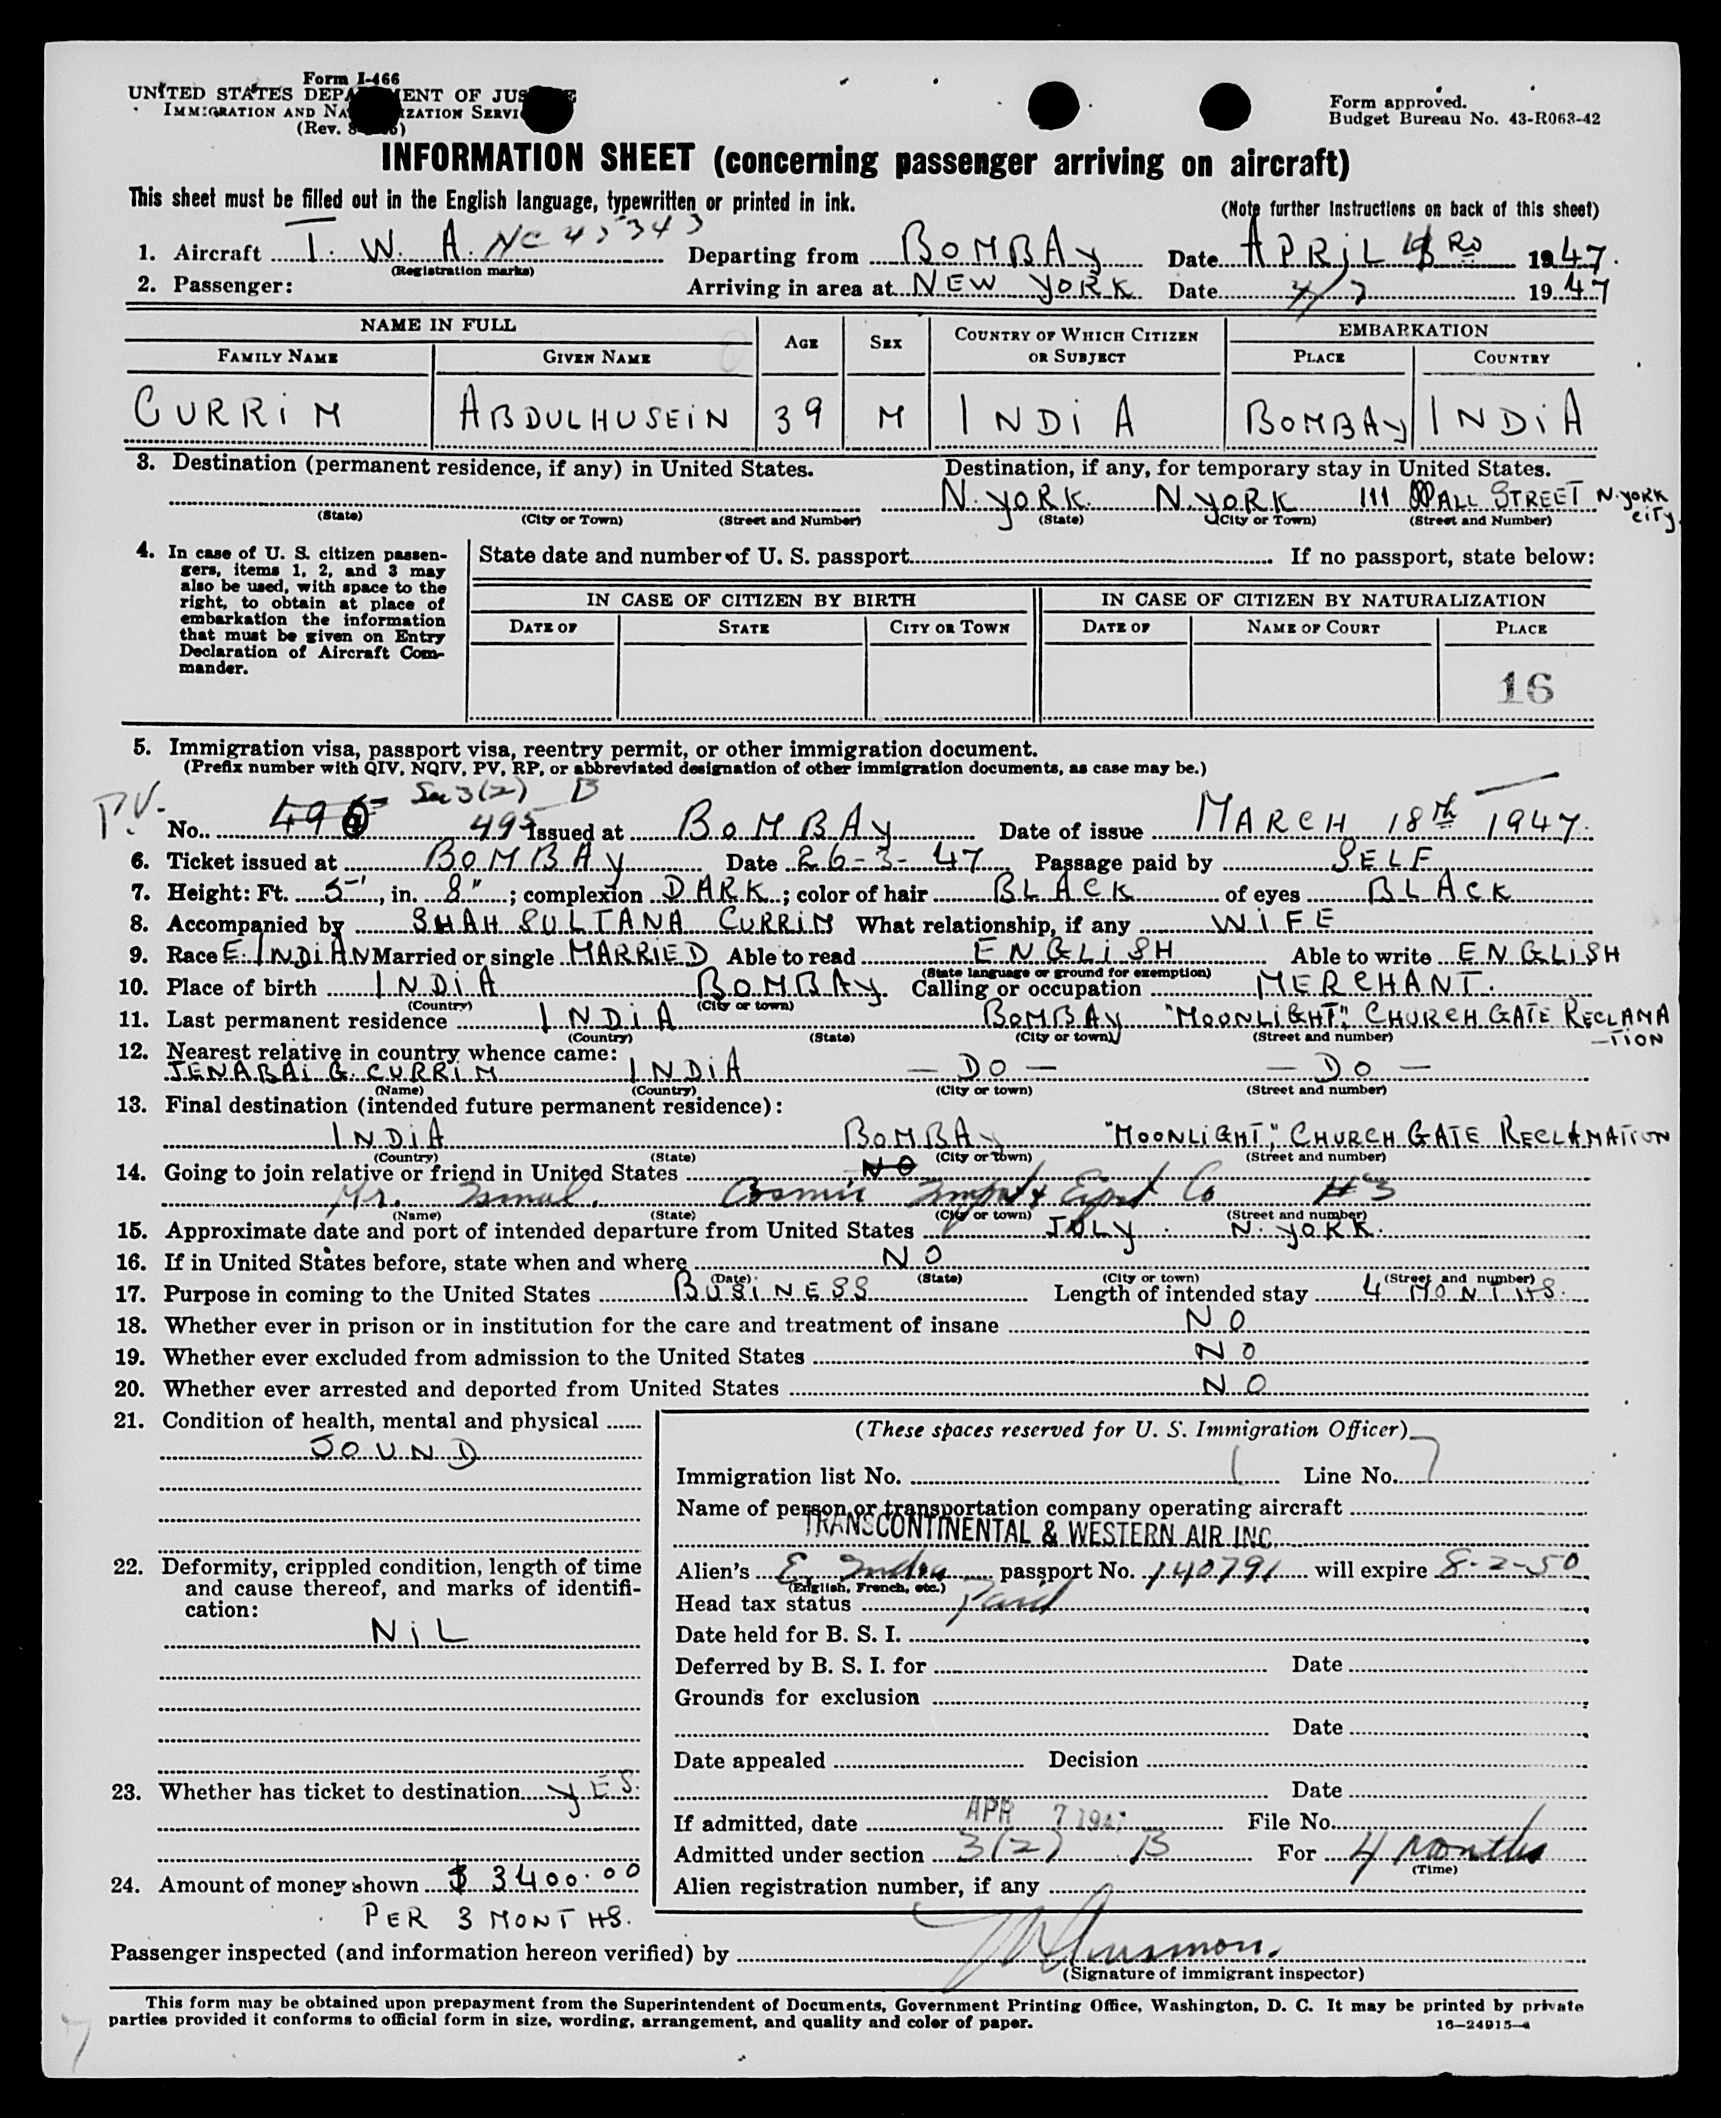 Form I-466
UNITED STATES DEPARTMENT OF JUSTICE
IMMIGRATION AND NATURALIZATION SERVICE
(Rev.
Form approved.
Budget Bureau No. 43-R063-42
INFORMATION SHEET (concerning passenger arriving on aircraft)
This sheet must be filled out in the English language, typewritten or printed in ink.
(Note further Instructions on back of this sheet)
1. Aircraft T. W. A. NC 45343 Departing from BOMBAY Date APRIL RD 1947.
(Registration marks)
2. Passenger: Arriving in area at NEW YORK Date 4/7 1947
NAME IN FULL AGE SEX COUNTRY OF WHICH CITIZEN OR SUBJECT EMBARKATION
FAMILY NAME GIVEN NAME PLACE COUNTRY
CURRIM ABDULHUSEIN 39 M INDIA BOMBAY INDIA
3. Destination (permanent residence, if any) in United States. Destination, if any, for temporary stay in United States.
N. YORK. N. YORK 111 WALL STREET N. YORK CITY.
(State) (City or Town) (Street and Number) (State) (City or Town) (Street and Number)
4. In case of U. S. citizen passen-
gers, items 1, 2, and 3 may
also be used, with space to the
right, to obtain at place of
embarkation the information
that must be given on Entry
Declaration of Aircraft Com-
mander.
State date and number of U. S. passport If no passport, state below:
IN CASE OF CITIZEN BY BIRTH IN CASE OF CITIZEN BY NATURALIZATION
DATE OF STATE CITY OR TOWN DATE OF NAME OF COURT PLACE
16
5. Immigration visa, passport visa, reentry permit, or other immigration document.
(Prefix number with QIV, NQIV, PV, RP, or abbreviated designation of other immigration documents, as case may be.)
Sec 3(2) B
P.V. No. 495 Issued at BOMBAY Date of issue MARCH 18th 1947.
6. Ticket issued at BOMBAY Date 26-3-47 Passage paid by SELF
7. Height: Ft. 5', in. 8"; complexion DARK; color of hair BLACK of eyes BLACK
8. Accompanied by SHAH SULTANA CURRIM What relationship, if any WIFE
9. Race E. INDIAN Married or single MARRIED Able to read ENGLISH Able to write ENGLISH
(State language or ground for exemption)
10. Place of birth INDIA BOMBAY. Calling or occupation MERCHANT.
(Country) (City or town)
11. Last permanent residence INDIA BOMBAY "MOONLIGHT", CHURCH GATE RECLAMA
-TION
(Country) (State) (City or town) (Street and number)
12. Nearest relative in country whence came:
JENABAI G. CURRIM INDIA — DO — — DO —
(Name) (Country) (City or town) (Street and number)
13. Final destination (intended future permanent residence):
INDIA BOMBAY "MOONLIGHT," CHURCH GATE RECLAMATION
(Country) (State) (City or town) (Street and number)
14. Going to join relative or friend in United States NO
Mr. Co #3
(Name) (State) (City or town) (Street and number)
15. Approximate date and port of intended departure from United States JULY. N. YORK.
16. If in United States before, state when and where NO
(Date) (State) (City or town) (Street and number)
17. Purpose in coming to the United States BUSINESS Length of intended stay 4 MONTHS.
18. Whether ever in prison or in institution for the care and treatment of insane NO
19. Whether ever excluded from admission to the United States NO
20. Whether ever arrested and deported from United States NO
21. Condition of health, mental and physical
SOUND
22. Deformity, crippled condition, length of time
and cause thereof, and marks of identifi-
cation:
NIL
23. Whether has ticket to destination YES.
24. Amount of money shown $ 3400.00
PER 3 MONTHS.
(These spaces reserved for U. S. Immigration Officer)
Immigration list No. 1 Line No. 7
Name of person or transportation company operating aircraft
TRANSCONTINENTAL & WESTERN AIR INC.
Alien's E. India passport No. 140791 will expire 8-2-50
(English, French, etc.)
Head tax status Paid
Date held for B. S. I.
Deferred by B. S. I. for Date
Grounds for exclusion
Date
Date appealed Decision
Date
If admitted, date APR 7 1947 File No.
Admitted under section 3(2) B For 4 months
(Time)
Alien registration number, if any
Passenger inspected (and information hereon verified) by
(Signature of immigrant inspector)
This form may be obtained upon prepayment from the Superintendent of Documents, Government Printing Office, Washington, D. C. It may be printed by private
parties provided it conforms to official form in size, wording, arrangement, and quality and color of paper.
16-24915-4
7